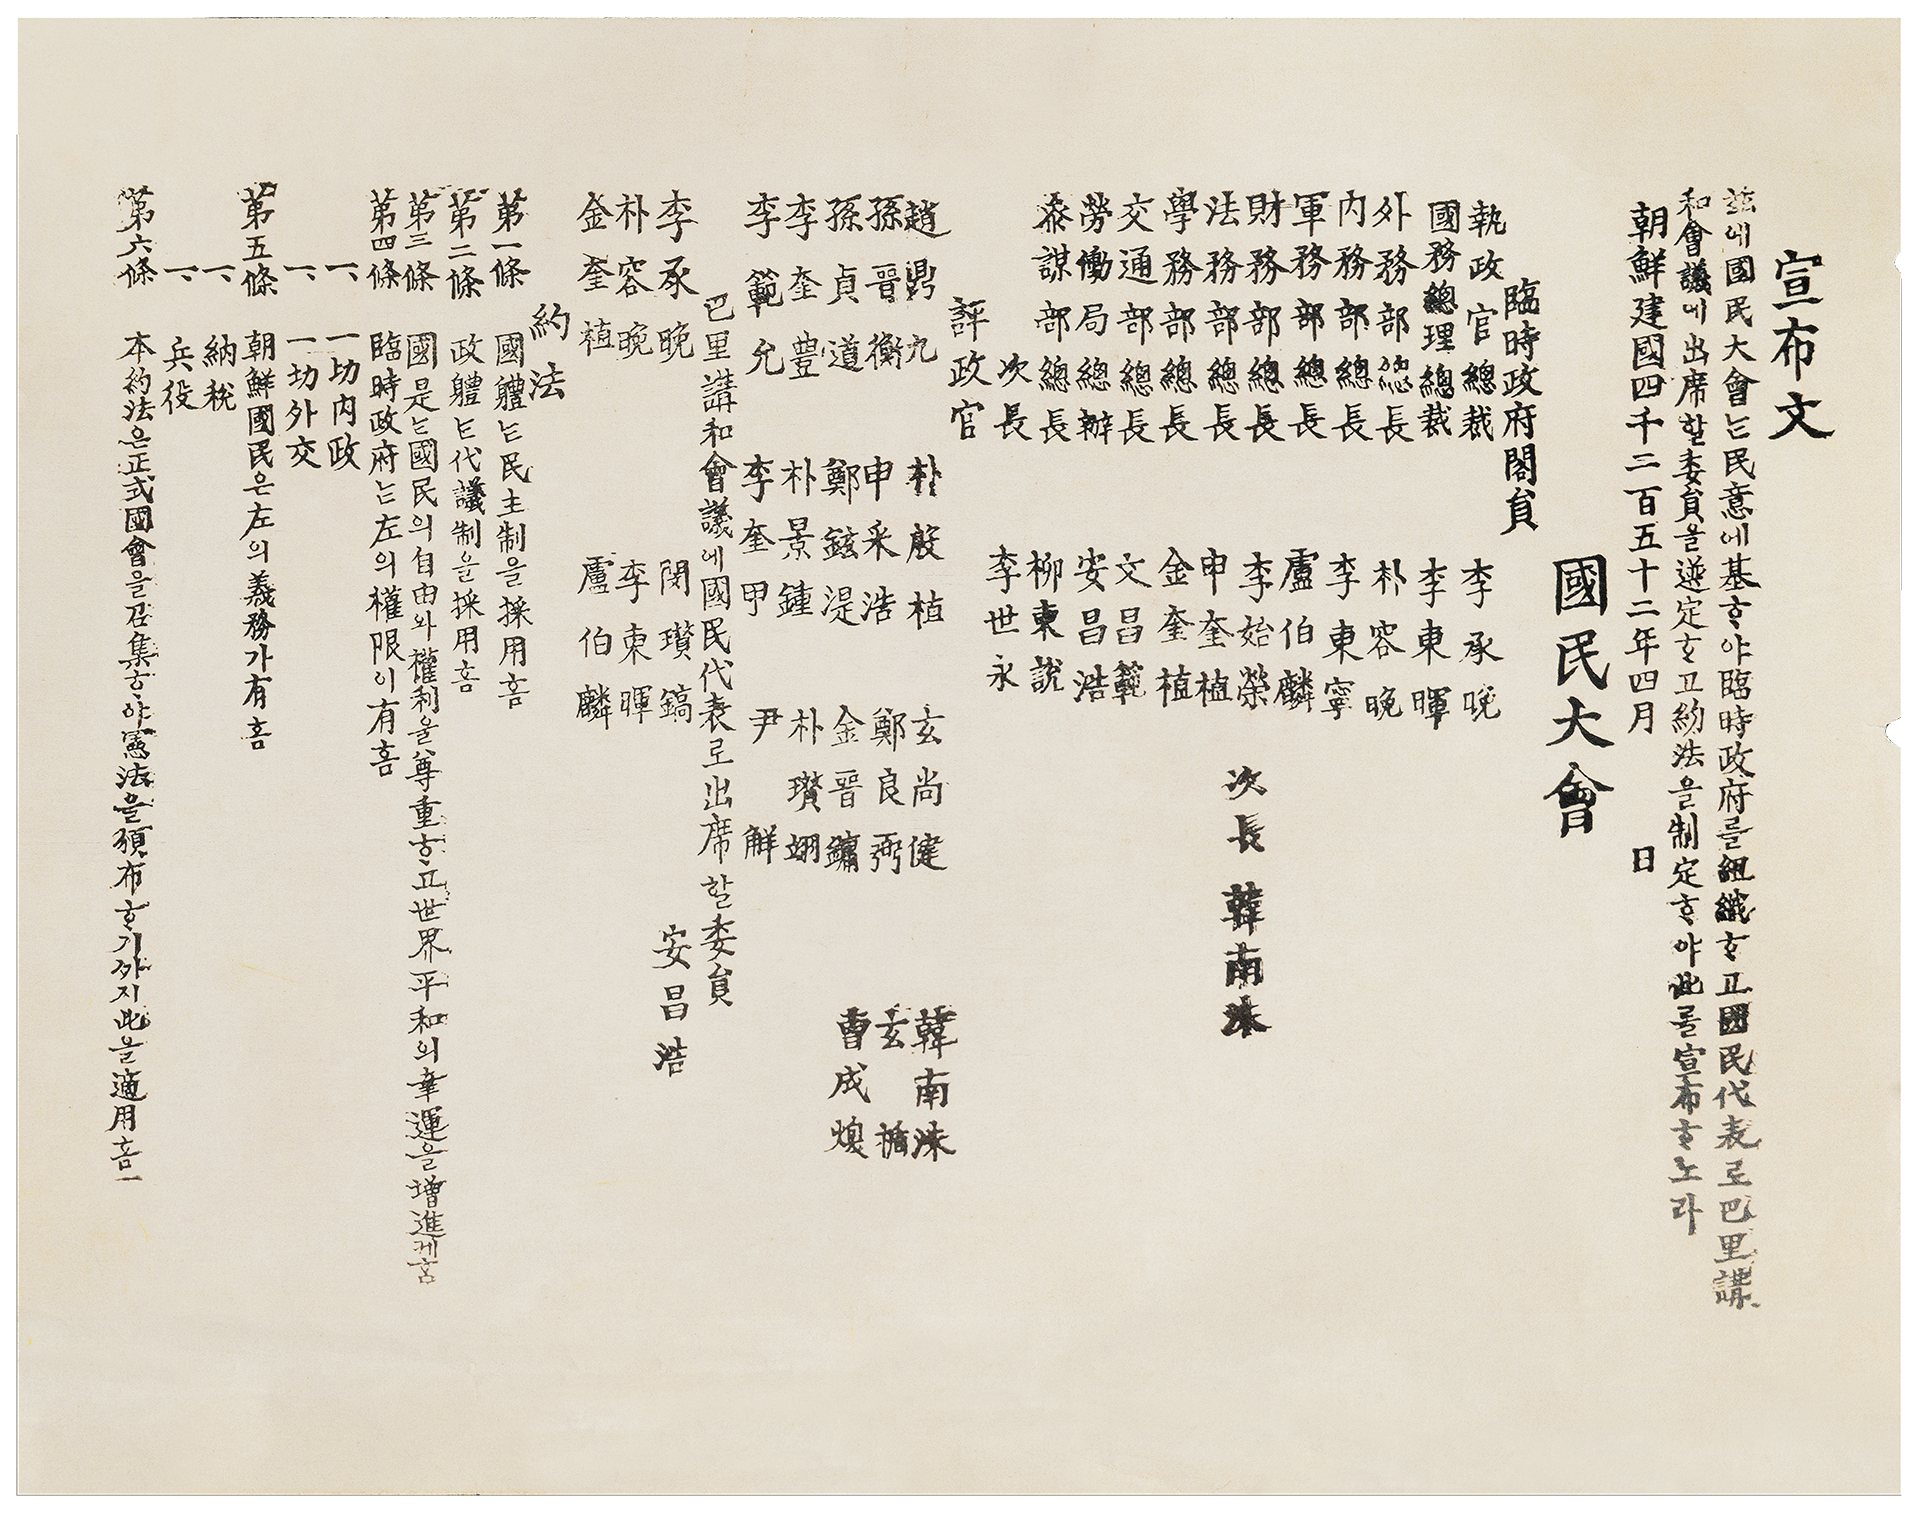 宣布文
玆에國民大會는民意에基ᄒᆞ야臨時政府를組織ᄒᆞ고國民代表로巴里講
和會議에出席할委員을選定ᄒᆞ고約法을制定ᄒᆞ야此를宣布ᄒᆞ노라
朝鮮建國四千二百五十二年四月 日
國民大會
臨時政府閣員
執政官總裁 李承晩
國務總理總裁 李東暉
外務部總長 朴容晩
內務部總長 李東寧
軍務部總長 盧伯麟
財務部總長 李始榮 次長 韓南洙
法務部總長 申奎植
學務部總長 金奎植
交通部總長 文昌範
勞働局總辦 安昌浩
叅謀部總長 柳東說
次長 李世永
評政官
趙鼎九 朴殷植 玄尚健 韓南洙
孫晋衡 申采浩 鄭良弼 玄楯
孫貞道 鄭鉉湜 金晋鏞 曺成煥
李奎豊 朴景鍾 朴瓚翊
李範允 李奎甲 尹解
巴里講和會議에國民代表로出席할委員
李承晩 閔瓚鎬 安昌浩
朴容晩 李東暉
金奎植 盧伯麟
約法
第一條 國體는民主制을採用홈
第二條 政體는代議制을採用홈
第三條 國是는國民의自由와權利을尊重ᄒᆞ고世界平和의幸運을增進케홈
第四條 臨時政府는左의權限이有홈
一、一切內政
一、一切外交
第五條 朝鮮國民은左의義務가有홈
一、納稅
一、兵役
第六條 本約法은正式國會을召集ᄒᆞ야憲法을頒布ᄒᆞ기ᄭᆞ지此을適用홈